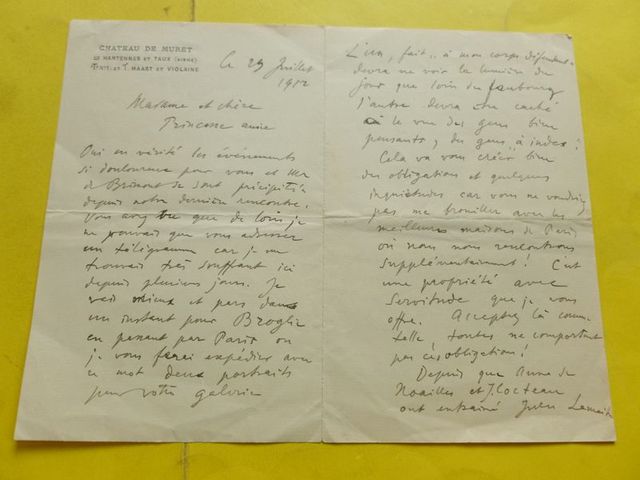 CHATEAU DE MURET
HARTENNES ET TAUX (AISNE)
MAAST ET VIOLAINE
Ce 29 Juillet
1912
Madame et chère
Princesse amie
Oui en vérité les événements
si douloureux pour vous et
de se sont précipités
depuis notre dernière rencontre.
Vous avez que de loin je
ne pouvais que vous adresser
un télégramme car je me
trouvais très souffrant ici
depuis plusieurs jours. Je
vais mieux et pars dans
un instant pour Broglie
en passant par Paris où
je vous ferai expédier avec
ce mot deux portraits
pour votre galerie
L'un, fait à mon corps défendant
devra ne voir la lumière du
jour que loin du faubourg
l'autre devra être caché
à la vue des gens bien
pensants, des gens à index!
Cela va vous créer bien
des obligations et quelques
inquiétudes car vous ne voudriez
pas me brouiller avec les
meilleures maisons de Paris
où nous nous rencontrons
supplémentairement! C'est
une propriété avec
servitude que je vous
offre. Acceptez là comme
telle, toutes ne comportent
pas ces obligations!
Depuis que Anna de
Noailles et J. Cocteau
ont entraîné Jules Lemaître